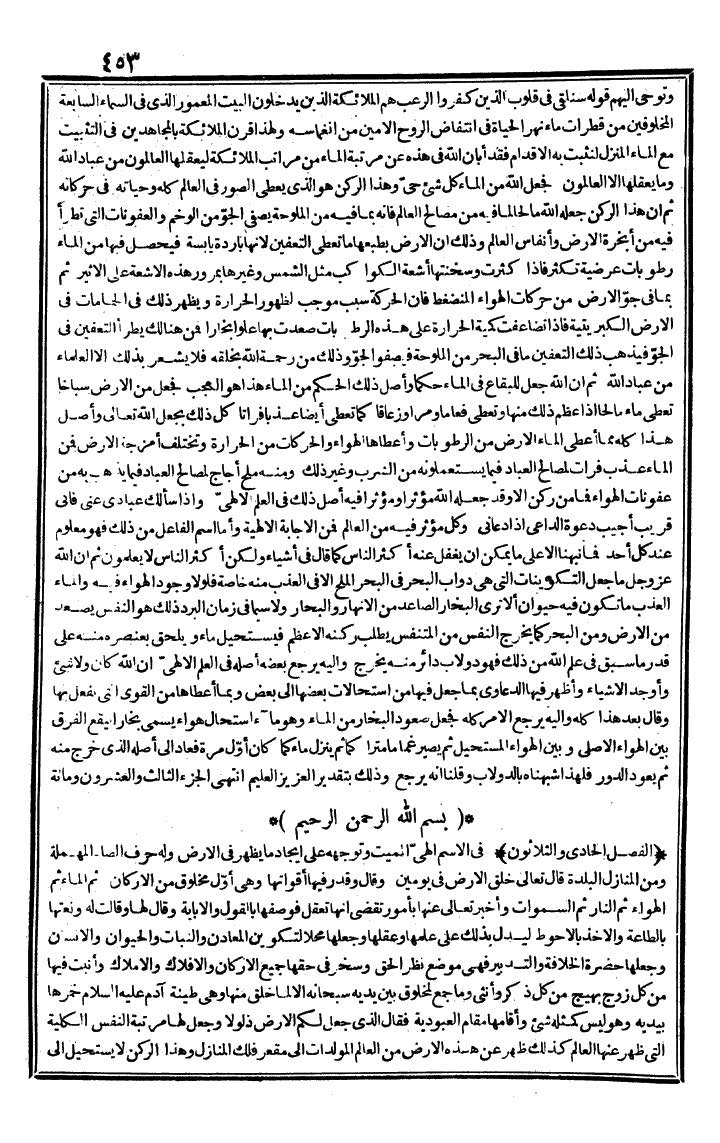 ٤٥٣
وتوحى اليهم قوله سنلقى فى قلوب الذين كفروا الرعب هم الملائكة الذين يدخلون البيت المعمور الذى فى السماء السابعة
المخلوقين من قطرات ماء نهر الحياة فى انتفاض الروح الامين من انغماسه ولهذا قرن الملائكة بالمجاهدين فى التثبيت
مع الماء المنزل لنثبت به الاقدام فقد أبان الله فى هذه عن مرتبة الماء من مراتب الملائكة ليعقلها العالمون من عباد الله
وما يعقلها الا العالمون فجعل الله من الماء كل شئ حىّ وهذا الركن هو الذى يعطى الصور فى العالم كله وحياته فى حركاته
ثم ان هذا الركن جعله الله مالحا لما فيه من مصالح العالم فانه بما فيه من الملوحة يصفى الجوّ من الوخم والعفونات التى تطرأ
فيه من أبخرة الارض وأنفاس العالم وذلك ان الارض بطبعها ما تعطى التعفين لانها باردة يابسة فيحصل فيها من الماء
رطوبات عرضية تكثر فاذا كثرت وسخنتها أشعة الكواكب مثل الشمس وغيرها بمرور هذه الاشعة على الاثير ثم
بما فى جوّ الارض من حركات الهواء المنضغط فان الحركة سبب موجب لظهور الحرارة ويظهر ذلك فى الحمامات فى
الارض الكبريتية فاذا تضاعفت كمية الحرارة على هذه الرطوبات صعدت بها علوا بخارا فمن هنالك يطرأ التعفين فى
الجوّ فيذهب ذلك التعفين ما فى البحر من الملوحة فيصفو الجوّ وذلك من رحمة الله بخلقه فلا يشعر بذلك الا العلماء
من عباد الله ثم ان الله جعل للبقاع فى الماء حكما وأصل ذلك الحكم من الماء هذا هو العجب فجعل من الارض سباخا
تعطى ماء مالحا اذا عظم ذلك منها وتعطى فعاما ومرا وزعاقا كما تعطى أيضا عذبا فراتا كل ذلك بجعل الله تعالى وأصل
هذا كله مما أعطى الماء الارض من الرطوبات وأعطاها الهواء والحركات من الحرارة وتختلف أمزجة الارض فمن
الماء عذب فرات لمصالح العباد فيما يستعملونه من الشرب وغير ذلك ومنه ملح أجاج لمصالح العباد فيما يذهب به من
عفونات الهواء فما من ركن الا وقد جعله الله مؤثرا ومؤثرا فيه أصل ذلك فى العلم الالهىّ واذا سألك عبادى عنى فانى
قريب أجيب دعوة الداعى اذا دعانى وكل مؤثر فيه من العالم فمن الاجابة الالهية وأما اسم الفاعل من ذلك فهو معلوم
عند كل أحد فما نبهنا الا على ما يمكن ان يغفل عنه أكثر الناس كما قال فى أشياء ولكن أكثر الناس لا يعلمون ثم ان الله
عز وجل ما جعل التكوينات التى هى دواب البحر فى البحر الملح الا فى العذب منه خاصة فلولا وجود الهواء فيه والماء
العذب ما تكون فيه حيوان ألا ترى البخار الصاعد من الانهار والبحار ولا سيما فى زمان البرد ذلك هو النفس يصعد
من الارض ومن البحر كما يخرج النفس من المتنفس يطلب ركنه الاعظم فيستحيل ماء ويلحق بعنصره منه على
قدر ما سبق فى علم الله من ذلك فهو دولاب دائر منه يخرج واليه يرجع بعضه أصله فى العلم الالهىّ ان الله كان ولا شئ
وأوجد الاشياء وأظهر فيها الدعاوى بما جعل فيها من استحالات بعضها الى بعض وبما أعطاها من القوى التى تفعل بها
وقال بعد هذا كله واليه يرجع الامر كله فجعل صعود البخار من الماء وهو ماء استحال هواء يسمى بخارا ليقع الفرق
بين الهواء الاصلى وبين الهواء المستحيل ثم يصير غما ما متراكما ثم ينزل ماء كما كان أوّل مرة فعاد الى أصله الذى خرج منه
ثم يعود الدور فلهذا شبهناه بالدولاب وقلنا انه يرجع وذلك بتقدير العزيز العليم انتهى الجزء الثالث والعشرون ومائة
*( بسم الله الرحمن الرحيم )*
﴿الفصل الحادى والثلاثون﴾ فى الاسم الهىّ المميت وتوجهه على ايجاد ما يظهر فى الارض وله حرف الصاد المهملة
ومن المنازل البلدة قال تعالى خلق الارض فى يومين وقال وقدر فيها أقواتها وهى أوّل مخلوق من الاركان ثم الماء ثم
الهواء ثم النار ثم السموات وأخبر تعالى عنها بأمور تقضى انها تعقل فوصفها بالقول والاباية وقال لها وقالت له ونعتها
بالطاعة والاخذ بالاحوط ليدل بذلك على علمها وعقلها وجعلها محلا لتكوين المعادن والنبات والحيوان والانسان
وجعلها حضرة الخلافة والتدبير فهى موضع نظر الحق وسخر فى حقها جميع الاركان والافلاك والاملاك وأنبت فيها
من كل زوج بهيج من كل ذكر وأنثى وما جمع لمخلوق بين يديه سبحانه الا لما خلق منها وهى طينة آدم عليه السلام خمرها
بيديه وهو ليس كمثله شئ وأقامها مقام العبودية فقال الذى جعل لكم الارض ذلولا وجعل لها مرتبة النفس الكلية
التى ظهر عنها العالم كذلك ظهر عن هذه الارض من العالم المولدات الى مقعر فلك المنازل وهذا الركن لا يستحيل الى